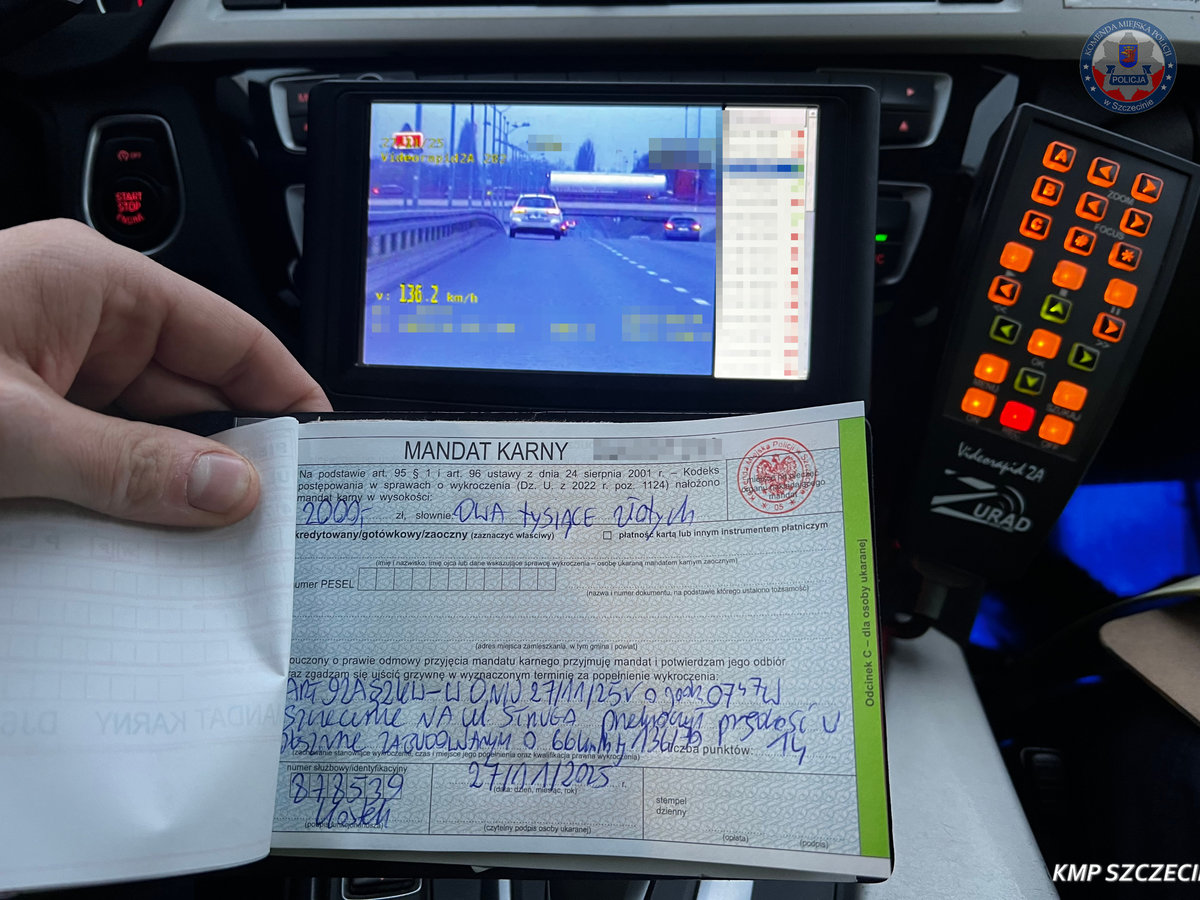 KOMENDA MIEJSKA POLICJI
POLICJA
w Szczecinie
Videorapid2A
v: 136.2 km/h
START
STOP
OFF
A
B
C
ZOOM
FOCUS
#
*
OK
MENU
SZUKAJ
Videorapid 2A
ZURAD
MANDAT KARNY
Na podstawie art. 95 § 1 i art. 96 ustawy z dnia 24 sierpnia 2001 r. – Kodeks
postępowania w sprawach o wykroczenia (Dz. U. z 2022 r. poz. 1124) nałożono
mandat karny w wysokości:
2000,- zł, słownie: DWA tysiące złotych
kredytowany/gotówkowy/zaoczny (zaznaczyć właściwy) □ płatność kartą lub innym instrumentem płatniczym
(imię i nazwisko, imię ojca lub dane wskazujące sprawcę wykroczenia – osobę ukaraną mandatem karnym zaocznym)
umer PESEL
(nazwa i numer dokumentu, na podstawie którego ustalono tożsamość)
(adres miejsca zamieszkania, w tym gmina i powiat)
ouczony o prawie odmowy przyjęcia mandatu karnego przyjmuję mandat i potwierdzam jego odbiór
az zgadzam się uiścić grzywnę w wyznaczonym terminie za popełnienie wykroczenia:
W DNIU 27/11/25r o godz 0747 W
SZCZECINIE NA UL STRUGA przekroczył prędkość w
OBSZARZE ZABUDOWANYM O 66 km/h 136/70
(zachowanie stanowiące wykroczenie, czas i miejsce jego popełnienia oraz kwalifikacja prawna wykroczenia)
Liczba punktów: 14
numer służbowy/identyfikacyjny
878539
(podpis funkcjonariusza)
27/11/2025 r.
(data: dzień, miesiąc, rok)
(czytelny podpis osoby ukaranej)
stempel
dzienny
(opłata)
(podpis)
Odcinek C – dla osoby ukaranej
MANDAT KARNY
KMP SZCZECI